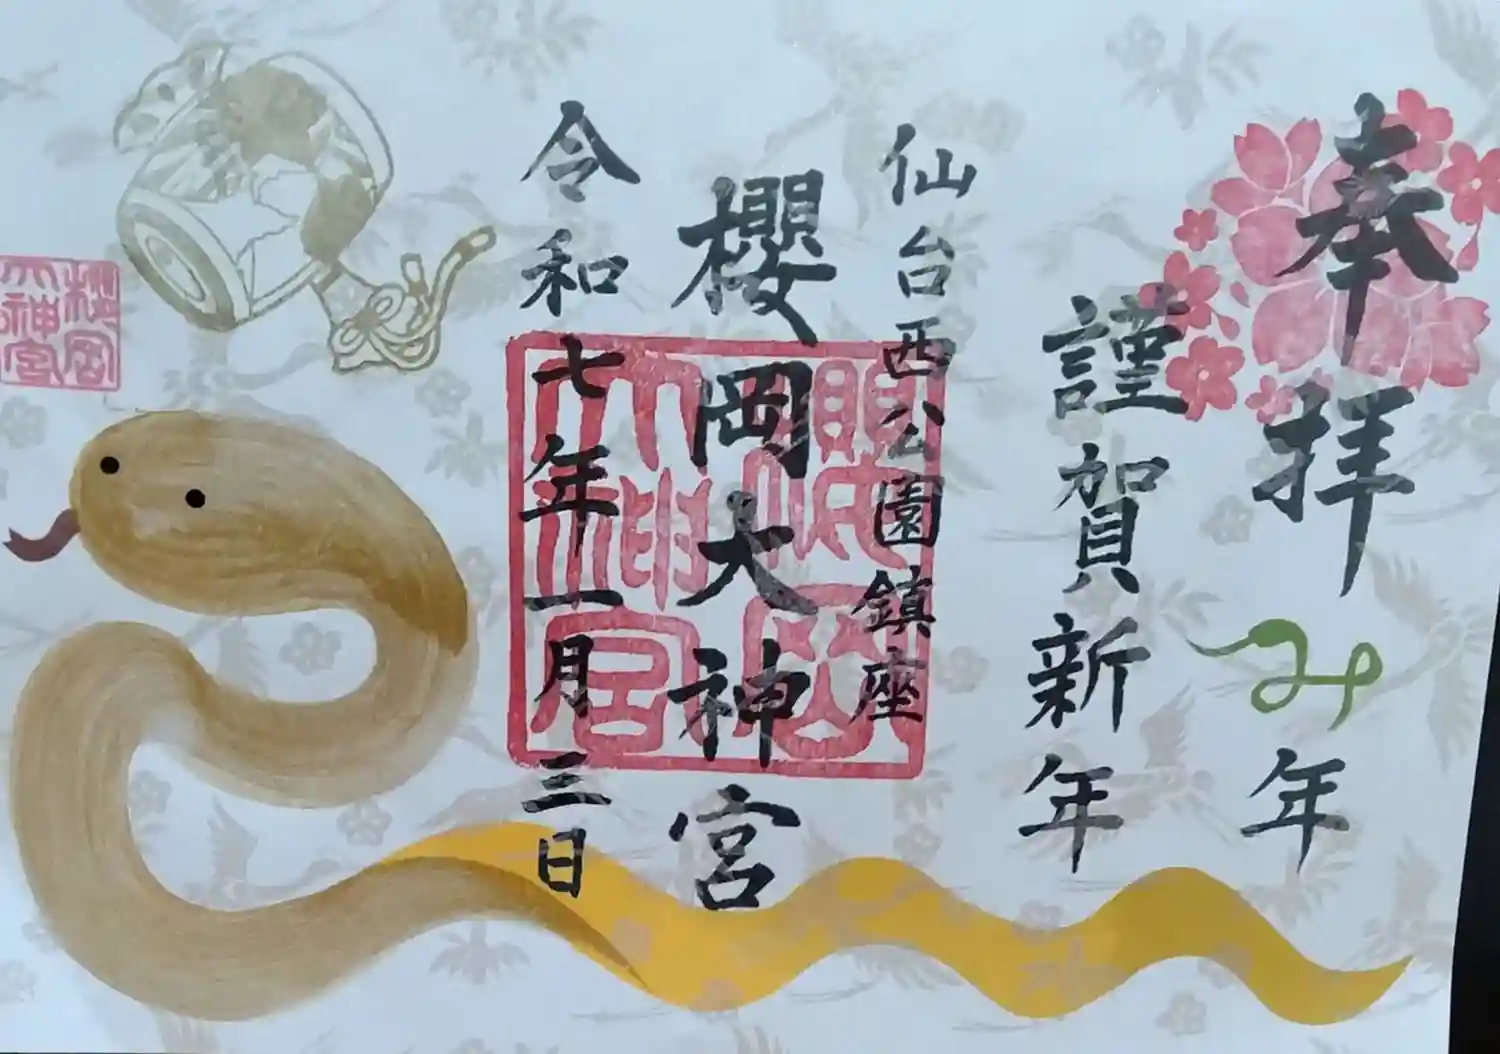 奉拝
み年
謹賀新年
仙台西公園鎮座
櫻岡大神宮
令和七年一月三日
櫻岡大神宮
櫻岡大神宮